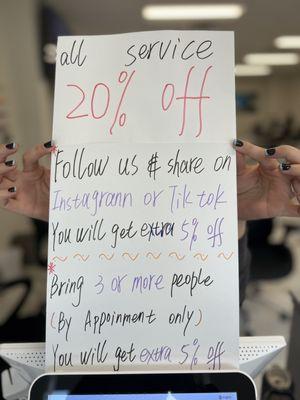 all service
20% off
*Follow us & share on
Instagrann or Tik tok
You will get extra 5% off
~ ~ ~ ~ ~ ~ ~ ~ ~ ~
*Bring 3 or more people
(By Appoinment only)
You will get extra 5% off